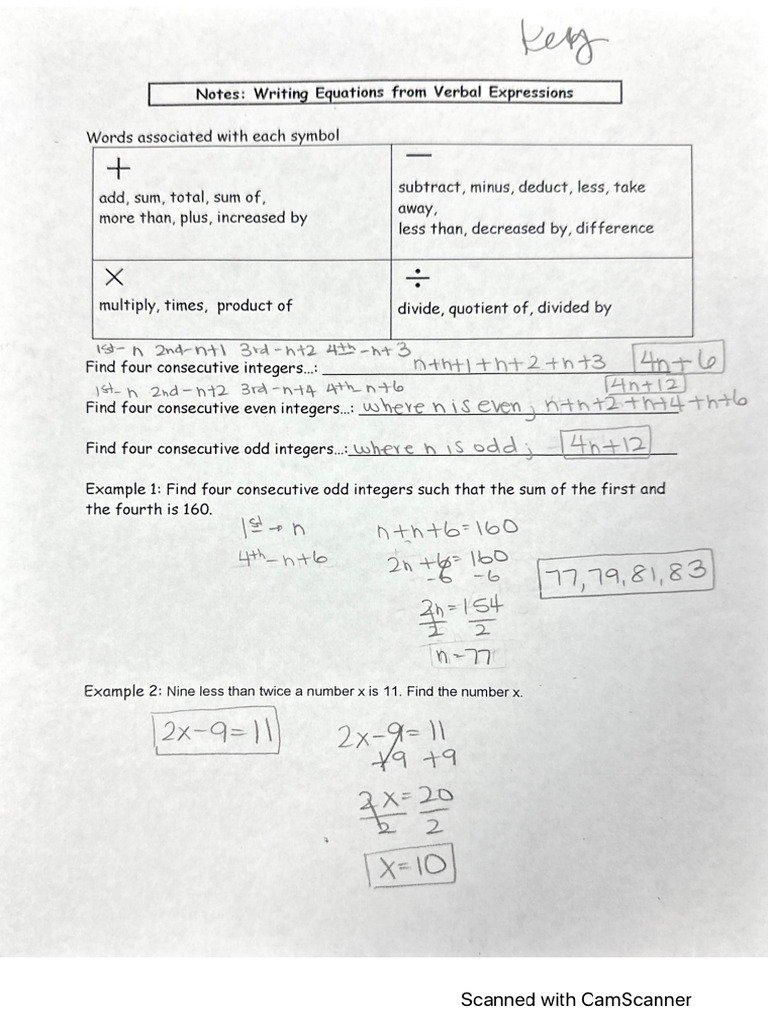 Key
Notes: Writing Equations from Verbal Expressions
Words associated with each symbol
+
add, sum, total, sum of,
more than, plus, increased by
−
subtract, minus, deduct, less, take
away,
less than, decreased by, difference
×
multiply, times, product of
÷
divide, quotient of, divided by
1st- n 2nd-n+1 3rd-n+2 4th-n+3
Find four consecutive integers...: n+n+1+n+2+n+3 4n+6
1st- n 2nd-n+2 3rd-n+4 4th n+6
4n+12
Find four consecutive even integers...: where n is even; n+n+2+n+4+n+6
Find four consecutive odd integers...: where n is odd; 4n+12
Example 1: Find four consecutive odd integers such that the sum of the first and
the fourth is 160.
1st → n n+n+6=160
4th-n+6 2n+6=160
-6 -6
77,79,81,83
2n=154
2 2
n=77
Example 2: Nine less than twice a number x is 11. Find the number x.
2x-9=11 2x-9=11
+9 +9
2x=20
2 2
x=10
Scanned with CamScanner